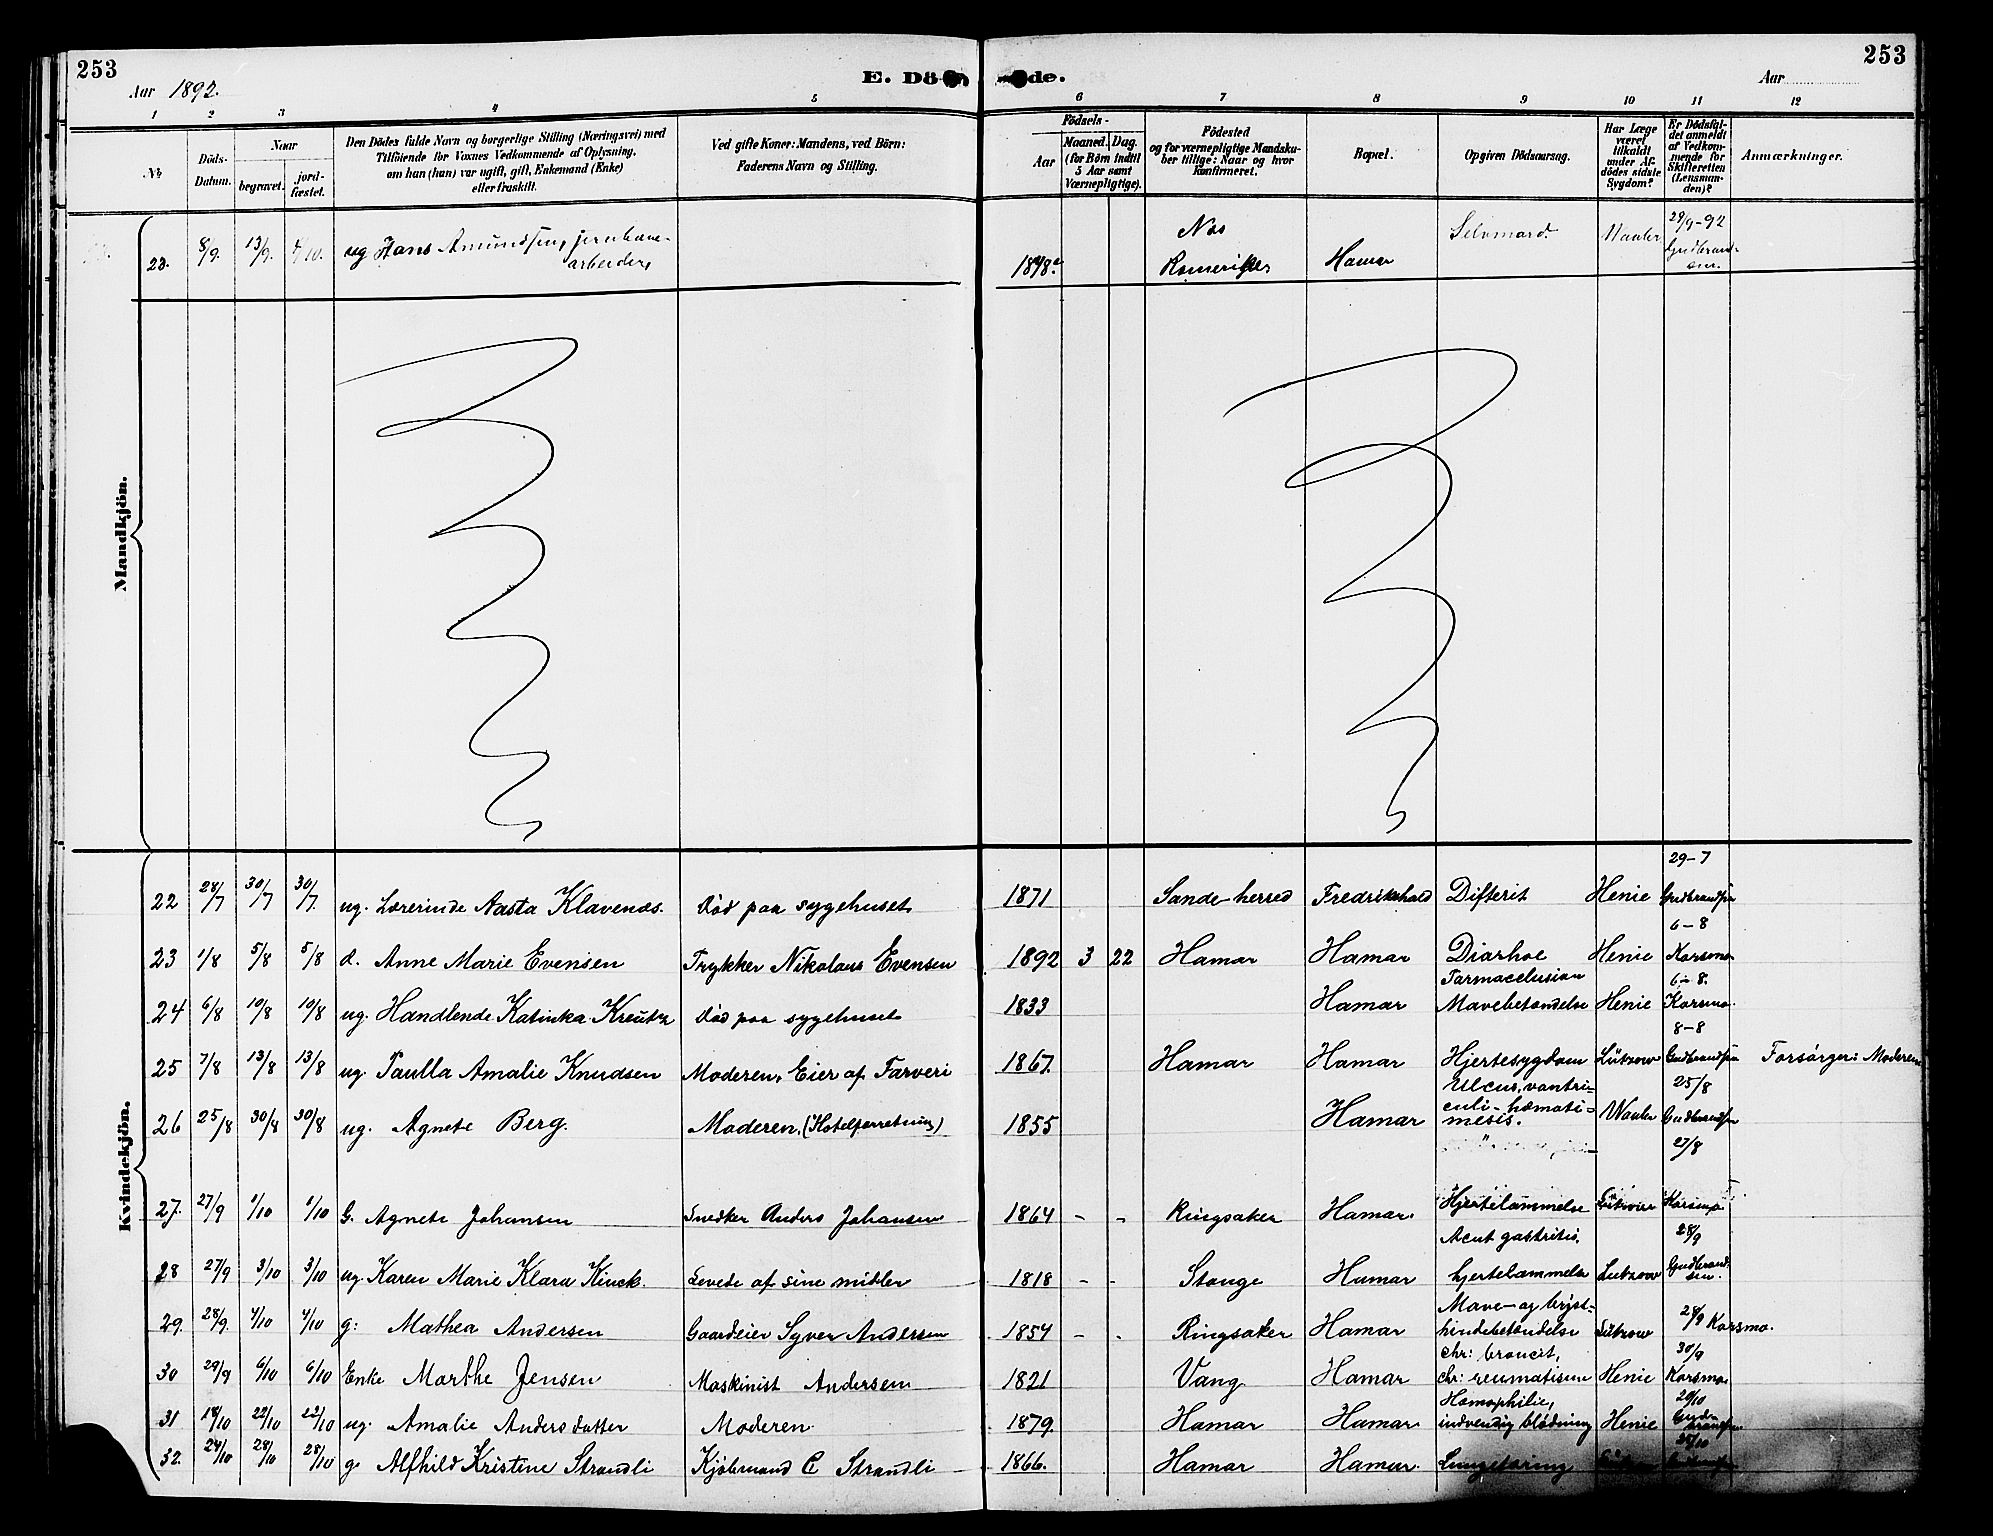 253
253
Aar 1892.
E. Dö de.
Aar
1 2 3 4 5 6 7 8 9 10 11 12
№
Döds-
Datum.
Naar
begravet.
jord-
fæstet.
Den Dödes fulde Navn og borgerlige Stilling (Næringsvei) med
Tilföiende for Voxnes Vedkommende af Oplysning,
om han (hun) var ugift, gift, Enkemand (Enke)
eller fraskilt.
Ved gifte Koner: Mandens, ved Börn:
Faderens Navn og Stilling.
Födsels-
Aar
Maaned. Dag.
(for Börn indtil
5 Aar samt
Værnepligtige).
Födested
og for værnepligtige Mandsku-
ber tillige: Naar og hvor
konfirmeret.
Bopæl.
Opgiven Dödsaarsag.
Har Læge
været
tilkaldt
under Af-
dödes sidste
Sygdom?
Er Dödsfal-
det anmeldt
af Vedkom-
mende for
Skifteretten
(Lensman-
den)?
Anmærkninger.
Mandkjön.
23. 8/9. 13/9. 4/10. ug Hans Amundsen, jernbane-
arbeider,
1848. Nes
Romerike Hamar Selvmord. Waaler 29/9-92
Gudbrand-
sen.
Kvindekjön.
29-7
22 28/7 30/7 30/7. ug. Lærerinde Aasta Klavenæs. Død paa sygehuset 1871 Sande herred Fredrikshald Difterit Henie Gudbrandsen
6-8
23 1/8 5/8 5/8 d. Anne Marie Evensen Trykker Nikolaus Evensen 1892 3 22 Hamar Hamar Diarhoe Henie Korsmo
Tarmocclusion 6-8.
24 6/8 10/8 10/8 ug. Handlende Katinka Kreutz Død paa sygehuset 1833 Hamar Mavebetændelse Henie Korsmo.
8-8
25 7/8 13/8 13/8 ug. Paulla Amalie Knudsen Moderen, Eier af Farveri 1867. Hamar Hamar Hjertesygdom Lützow Gudbrandsen Forsørger: Moderen
Ulcus, ventri- 25/8
culi-hæmati-
26 25/8 30/8 30/8 ug. Agnete Berg. Moderen, (Hotelforretning) 1855 Hamar mesis. Waaler Gudbrandsen
27/8
27. 27/9 1/10 1/10 G. Agnete Johansen Snedker Anders Johansen 1864 - - Ringsaker Hamar. Hjertelammelse Lützow Korsmo
Acut gastritis. 28/9
28 27/9 3/10 3/10 ug Karen Marie Klara Kinck. Levede af sine midler 1818 - - Stange Hamar hjertelammelse Lutzow Gudbrand-
sen.
Mave- og bryst-
29. 28/9. 4/10 4/10 g: Mathea Andersen Gaardeier Syver Andersen 1854 - - Ringsaker Hamar hindebetændelse Lützow 28/9 Korsmo.
chr: broncit, 30/9
30 29/9 6/10 6/10 Enke Marthe Jensen Maskinist Andersen 1821 Vang Hamar chr: reumatisme Henie Korsmo
Hæmophilie, 20/10
31 18/10 22/10 22/10 ug. Amalie Andersdatter Moderen 1879. Hamar Hamar indvendig blødning Henie Gud-
brandsen
25/10
32. 24/10 28/10 28/10 g. Alfhild Kristine Strandli Kjøbmand C Strandli 1866. Hamar Hamar. Lungetæring